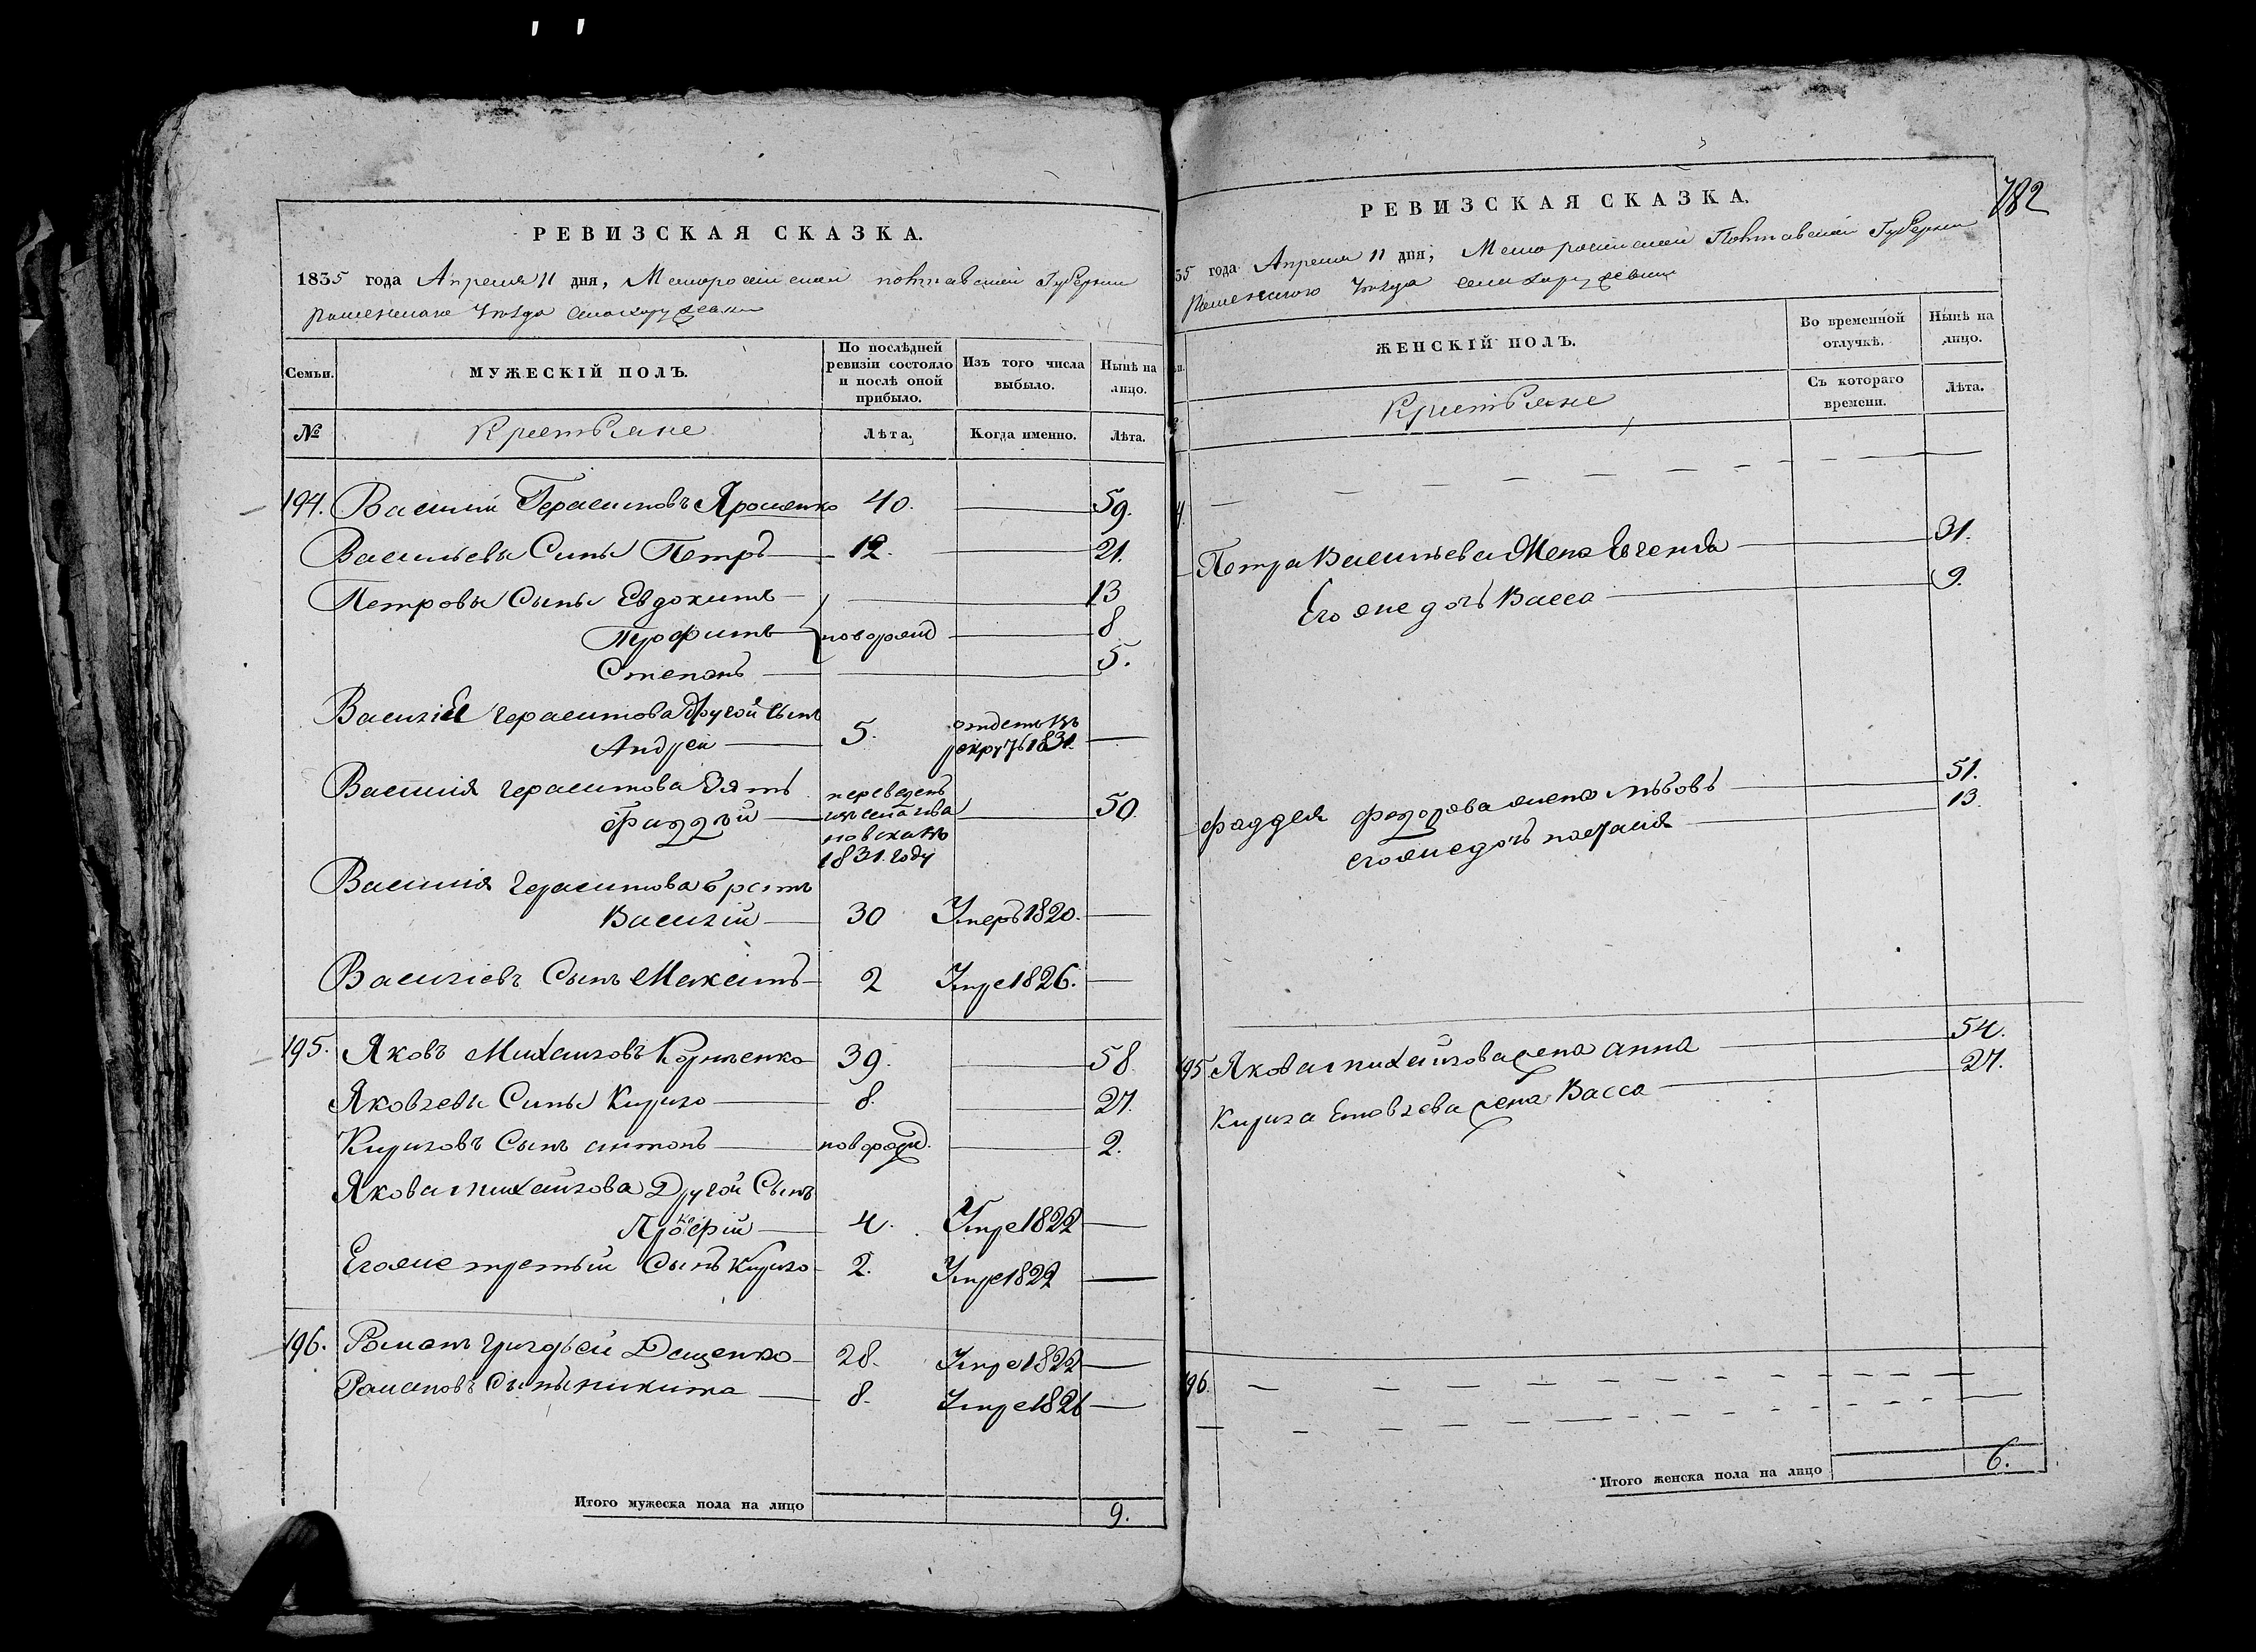 РЕВИЗСКАЯ СКАЗКА.
1835 года Апреля 11 дня, Малоросійской Полтавской Губерніи
Роменскаго уѣзда села
Семьи.
МУЖЕСКІЙ ПОЛЪ.
По послѣдней ревизіи состояло и послѣ оной прибыло.
Изъ того числа выбыло.
Нынѣ на лицо.
№
Крестьяне
Лѣта,
Когда именно.
Лѣта.
194. Василий Герасимовъ Ярошенко 40. 59.
Васильевы Сины Петръ 12. 21.
Петровы Сыны Евдокимъ 13
Трофимъ новорожд 8
Степанъ 5.
Василія Герасимова другой сынъ
Андрей 5. отдетъ въ рекруты 1831.
Василия Герасимова Зять
Фаддѣй переведенъ 1831. году 50.
Василия Герасимова братъ
Василий 30 Умеръ 1820.
Василіевъ Сынъ Максимъ 2 Умре 1826.
195. Яковъ Михайловъ Корніенко 39. 58.
Яковлевы Сины Кирило 8. 27.
Кириловъ Сынъ антонъ новорожд. 2.
Якова михайлова Другой Сынъ
Прокофій 4. Умре 1822
Егоже третьий Сынъ Кирило 2. Умре 1822
196. Романъ Дащенко 28. Умре 1822
Романовъ Сынъ никита 8. Умре 1826
Итого мужеска пола на лицо 9.
782
РЕВИЗСКАЯ СКАЗКА.
35 года Апреля 11 дня, Малоросійской Полтавской Губерніи
Роменскаго уѣзда села
ЖЕНСКІЙ ПОЛЪ.
Во временной отлучкѣ.
Нынѣ на лицо.
Крестьяне
Съ котораго времени.
Лѣта.
Петра Васильева Жена Евгенія 31.
Его же дочь Васса 9.
Фаддея Федорова жена любовь 51.
егоже дочь 13.
195 Якова михайлова жена анна 54.
Кирила Яковлева жена Васса 27.
196.
Итого женска пола на лицо 6.